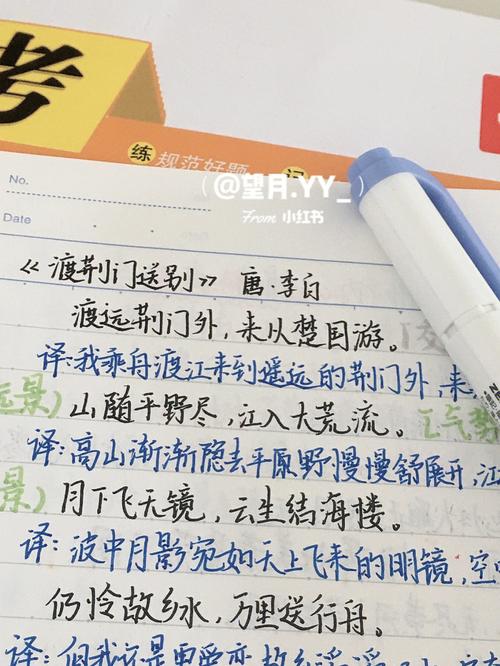 考
练 规范好题 记
(@望月.YY_)
From 小红书
No.
Date
《渡荆门送别》 唐·李白
渡远荆门外，来从楚国游。
译:我乘舟渡江来到遥远的荆门外，来
远景) 山随平野尽，江入大荒流。 [气势
译:高山渐渐隐去平原野慢慢舒展开，江
景) 月下飞天镜，云生结海楼。
译:波中月影宛如天上飞来的明镜，空
仍怜故乡水，万里送行舟。
译:但我还是更爱恋故乡